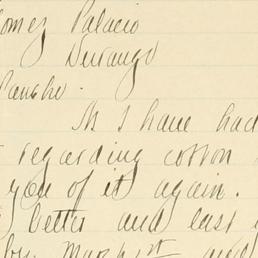 Gomez Palacio
Durango
Rancho.
As I have had
regarding cotton
you of it again.
letter and last
by March 1st and